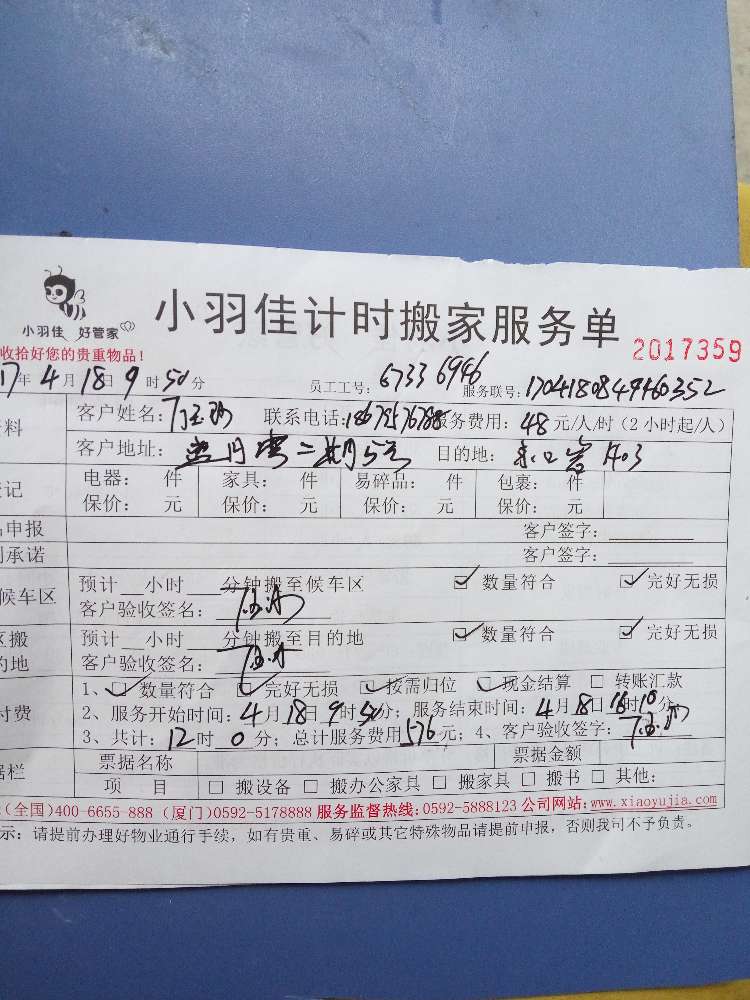 小羽佳 好管家
小羽佳计时搬家服务单
2017359
收拾好您的贵重物品!
17年4月18日9时50分 员工工号: 6733 6946 服务联号: 1704180849460352
资料 客户姓名: 联系电话: 服务费用: 48元/人/时 (2小时起/人)
客户地址: 二期5号 目的地: 1403
登记 电器: 件 家具: 件 易碎品: 件 包裹: 件
保价: 元 保价: 元 保价: 元 保价: 元
品申报 客户签字:
承诺 客户签字:
候车区 预计 小时 分钟搬至候车区 ☑ 数量符合 ☑ 完好无损
客户验收签名:
区搬 预计 小时 分钟搬至目的地 ☑ 数量符合 ☑ 完好无损
的地 客户验收签名:
1、☑ 数量符合 ☑ 完好无损 ☑ 按需归位 ☑ 现金结算 □ 转账汇款
付费 2、服务开始时间: 4月18日9时50分; 服务结束时间: 4月18日16时10分
3、共计: 12时0分; 总计服务费用576元; 4、客户验收签字:
票据名称 票据金额
据栏 项 目 □ 搬设备 □ 搬办公家具 □ 搬家具 □ 搬书 □ 其他:
(全国)400-6655-888 (厦门)0592-5178888 服务监督热线:0592-5888123 公司网站:www.xiaoyujia.com
示: 请提前办理好物业通行手续,如有贵重、易碎或其它特殊物品请提前申报,否则我司不予负责。